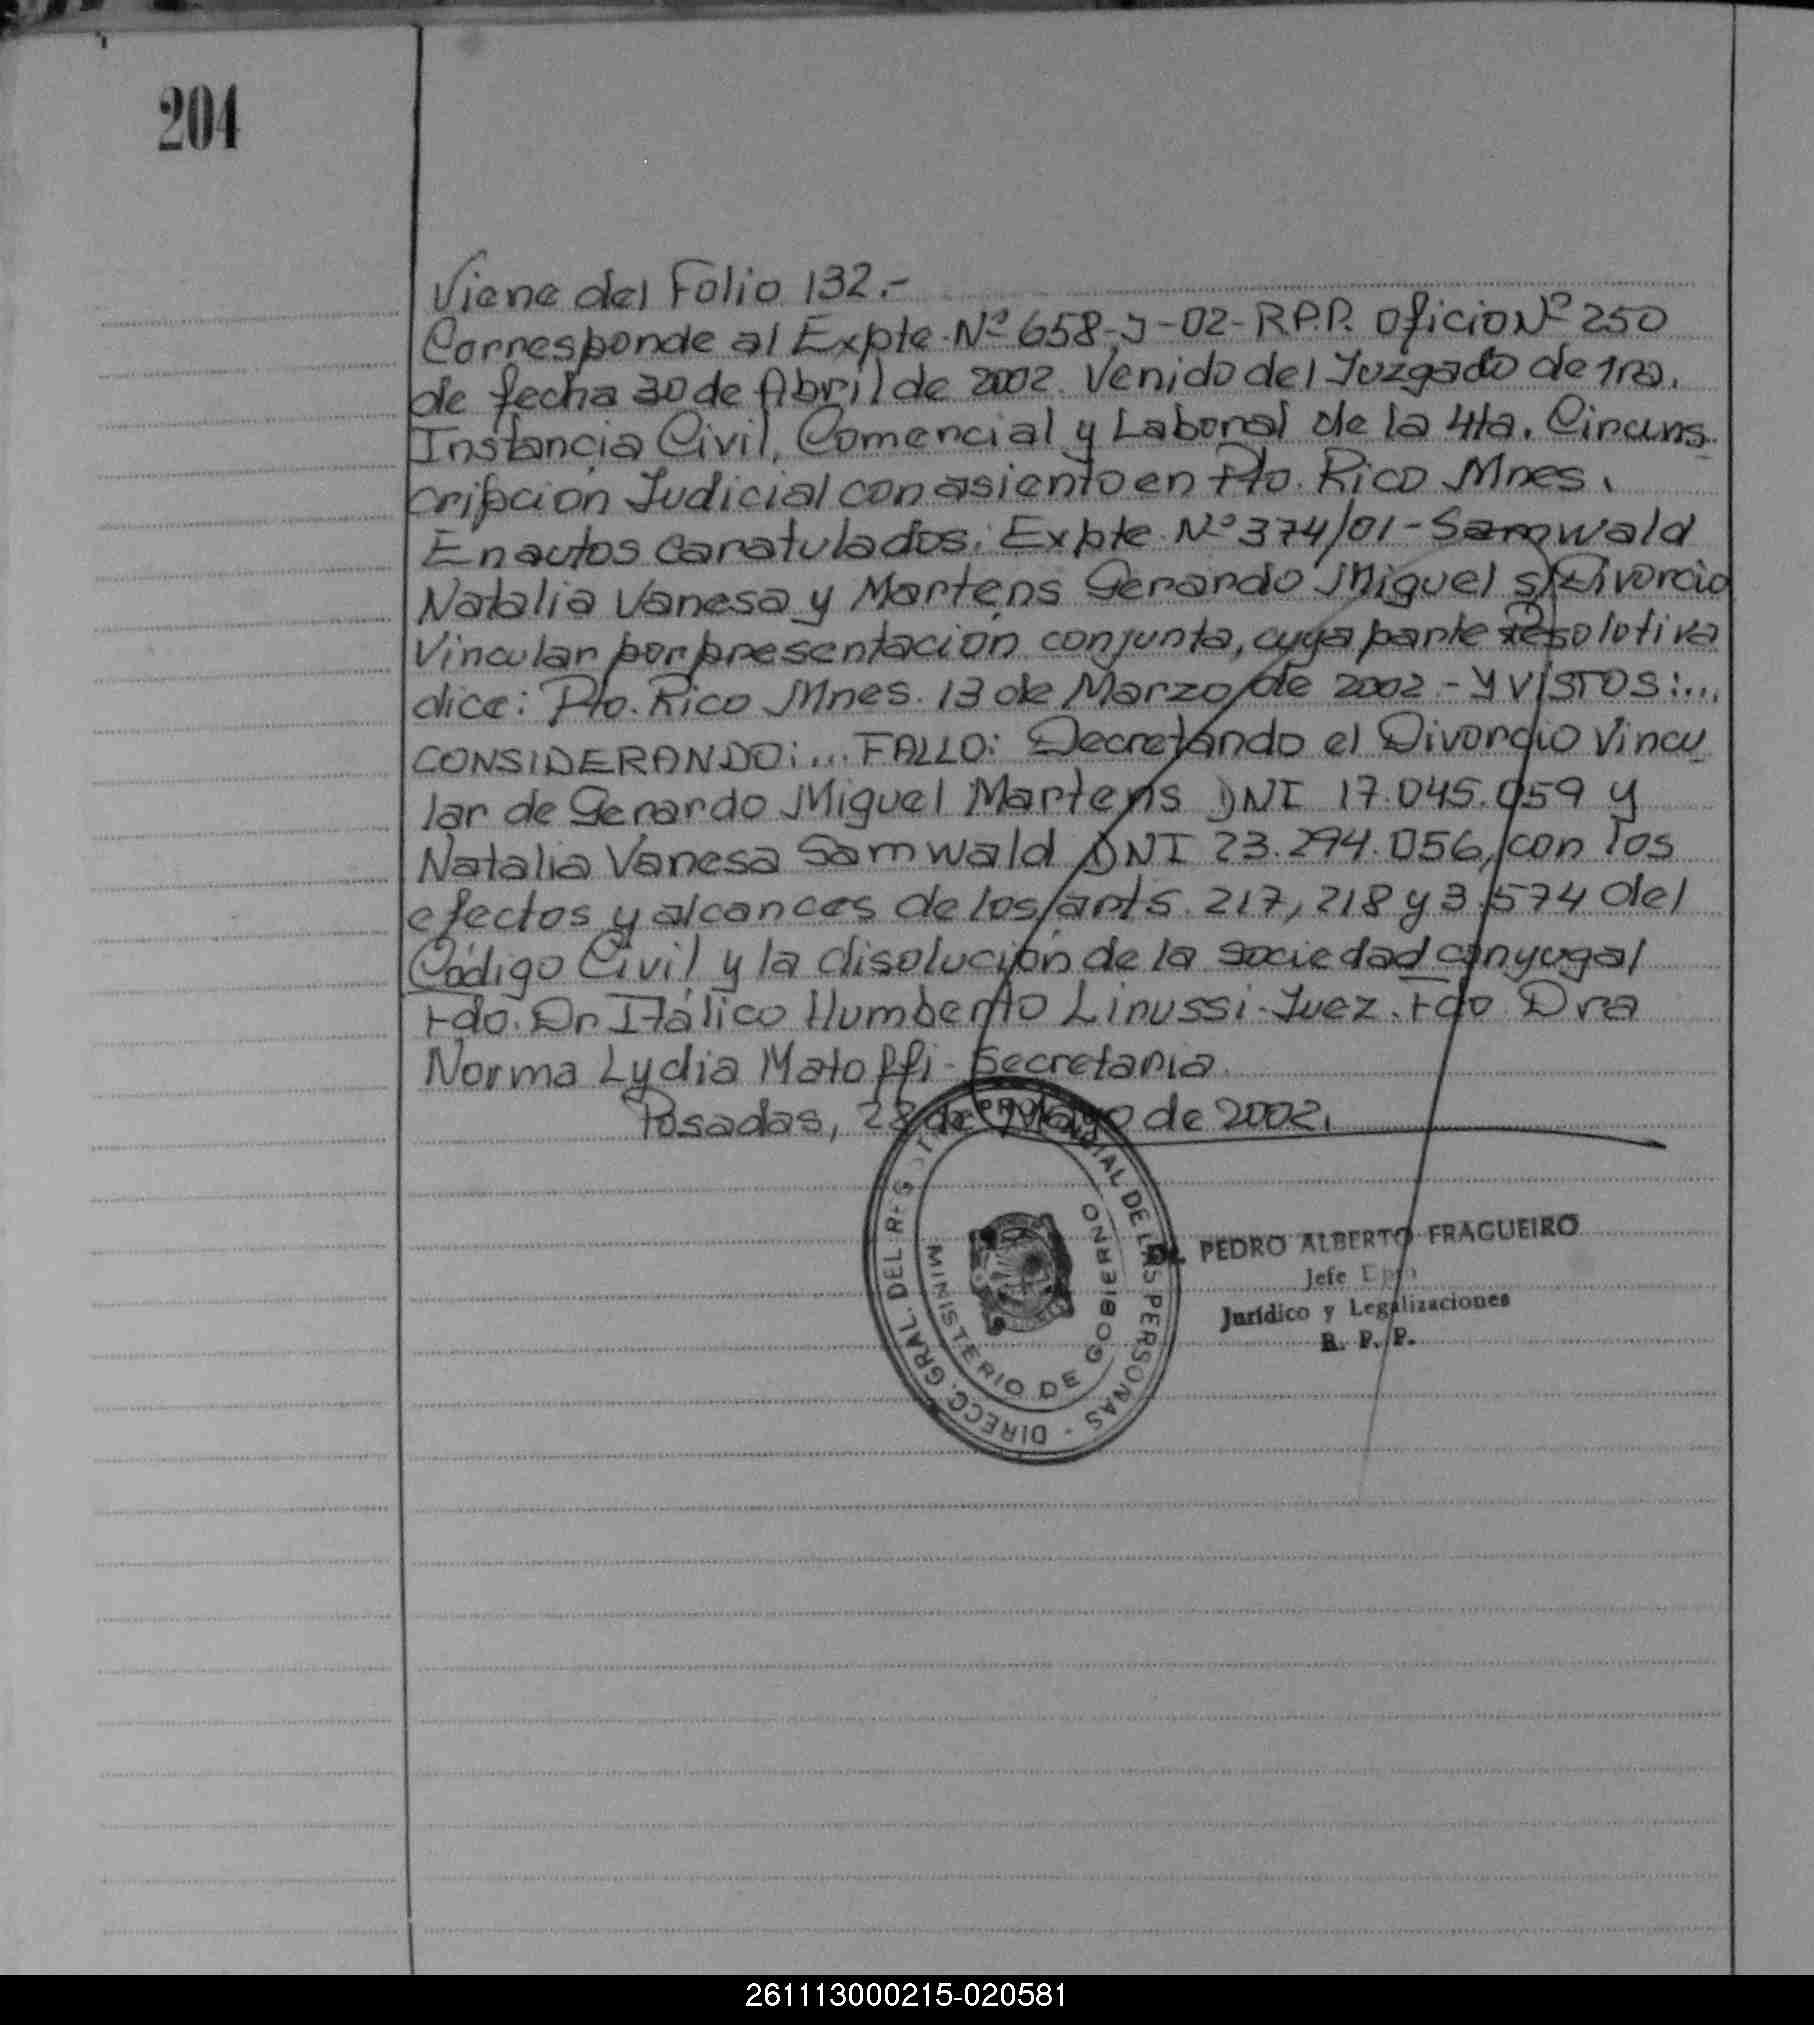 204
Viene del Folio 132.-
Corresponde al Expte. Nº 658-J-02-R.P.P. Oficio Nº 250
de fecha 30 de Abril de 2002. Venido del Juzgado de 1ra.
Instancia Civil, Comercial y Laboral de la 4ta. Circuns
cripción Judicial con asiento en Pto. Rico Mnes.
En autos caratulados: Expte Nº 374/01-Samwald
Natalia Vanesa y Martens Gerardo Miguel s/Divorcio
Vincular por presentación conjunta, cuya parte resolutiva
dice: Pto. Rico Mnes. 13 de Marzo de 2002.- Y VISTOS:...
CONSIDERANDO:... FALLO: Decretando el Divorcio Vincu
lar de Gerardo Miguel Martens DNI 17.045.059 y
Natalia Vanesa Samwald DNI 23.294.056, con los
efectos y alcances de los arts. 217, 218 y 3.574 del
Código Civil y la disolución de la sociedad conyugal
Fdo. Dr Itálico Humberto Linussi-Juez. Fdo Dra
Norma Lydia Matoffi-Secretaria.
Posadas, 28 de Mayo de 2002.
DIRECC. GRAL. DEL REGISTRO PROVINCIAL DE LAS PERSONAS -
MINISTERIO DE GOBIERNO
Dr. PEDRO ALBERTO FRAGUEIRO
Jefe Dpto
Jurídico y Legalizaciones
R. P. P.
261113000215-020581